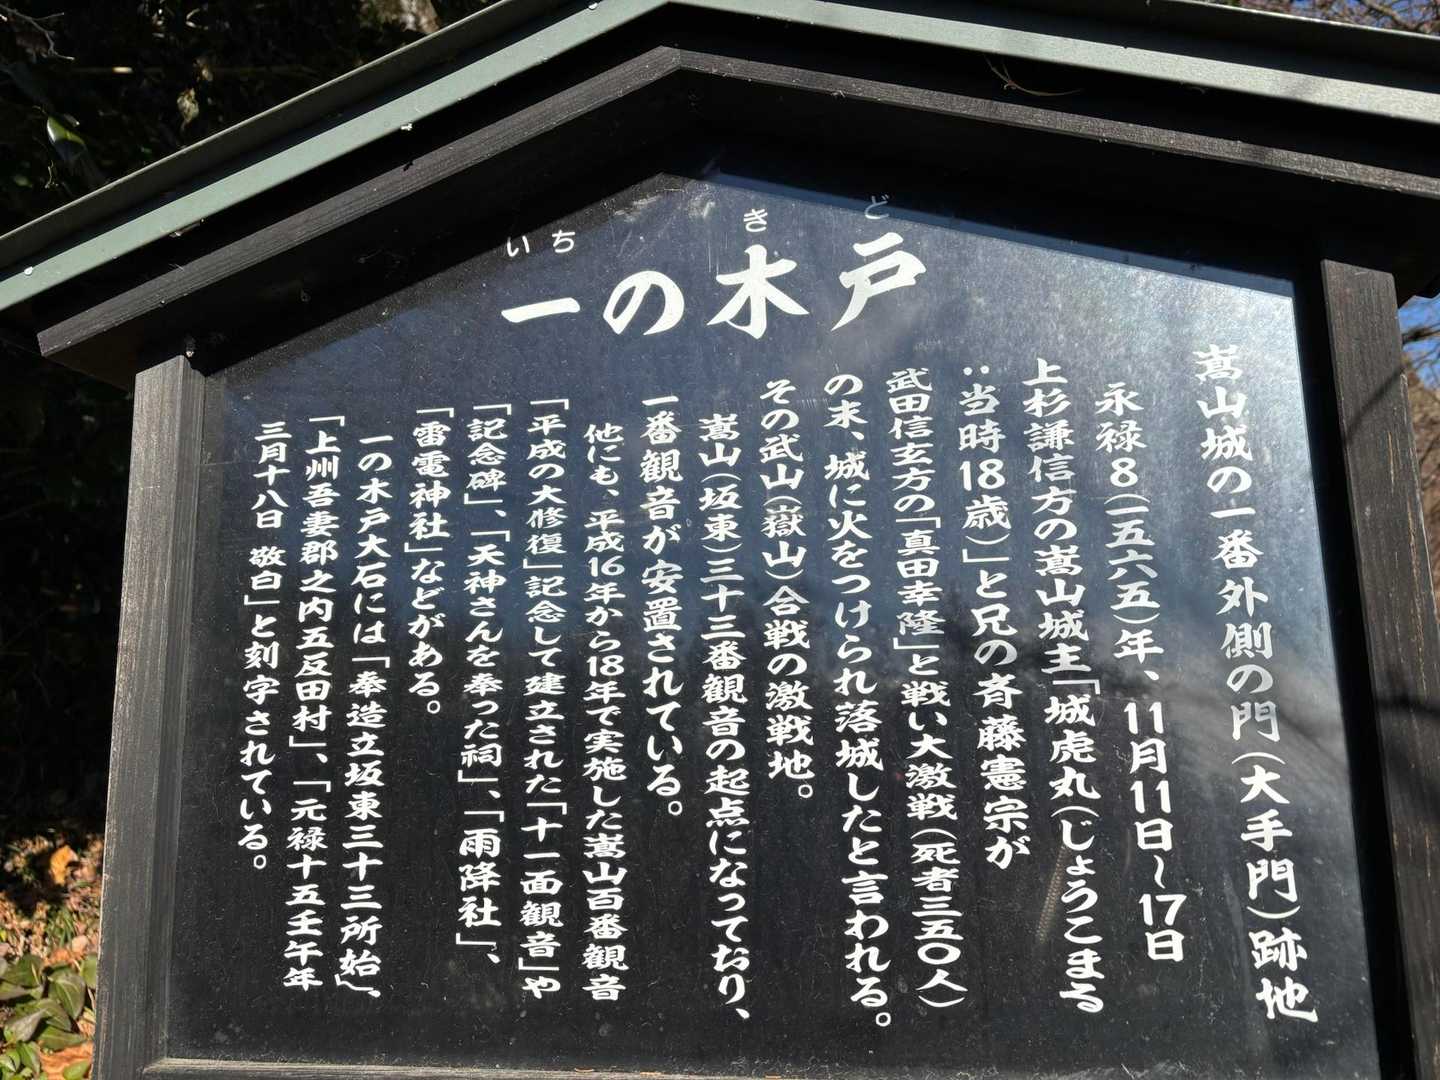 いち　き　ど
一の木戸
嵩山城の一番外側の門(大手門)跡地
永禄8(一五六五)年、11月11日～17日
上杉謙信方の嵩山城主「城虎丸(じょうこまる
:当時18歳)」と兄の斉藤憲宗が
武田信玄方の「真田幸隆」と戦い大激戦(死者三五〇人)
の末、城に火をつけられ落城したと言われる。
その武山(嶽山)合戦の激戦地。
嵩山(坂東)三十三番観音の起点になっており、
一番観音が安置されている。
他にも、平成16年から18年で実施した嵩山百番観音
「平成の大修復」記念して建立された「十一面観音」や
「記念碑」、「天神さんを奉った祠」、「雨降社」、
「雷電神社」などがある。
一の木戸大石には「奉造立坂東三十三所始」、
「上州吾妻郡之内五反田村」、「元禄十五壬午年
三月十八日 敬白」と刻字されている。